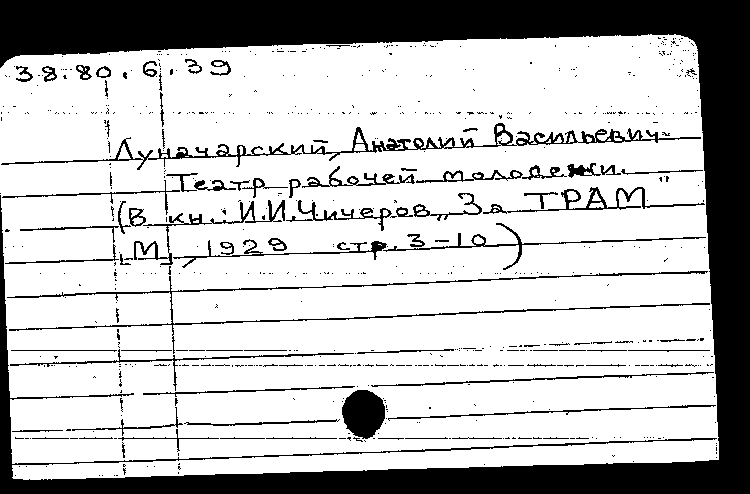 38.80.6.39
Луначарский, Анатолий Васильевич
Театр рабочей молодежи.
(В кн.: И.И.Чичеров „За ТРАМ"
[М], 1929 стр. 3-10)